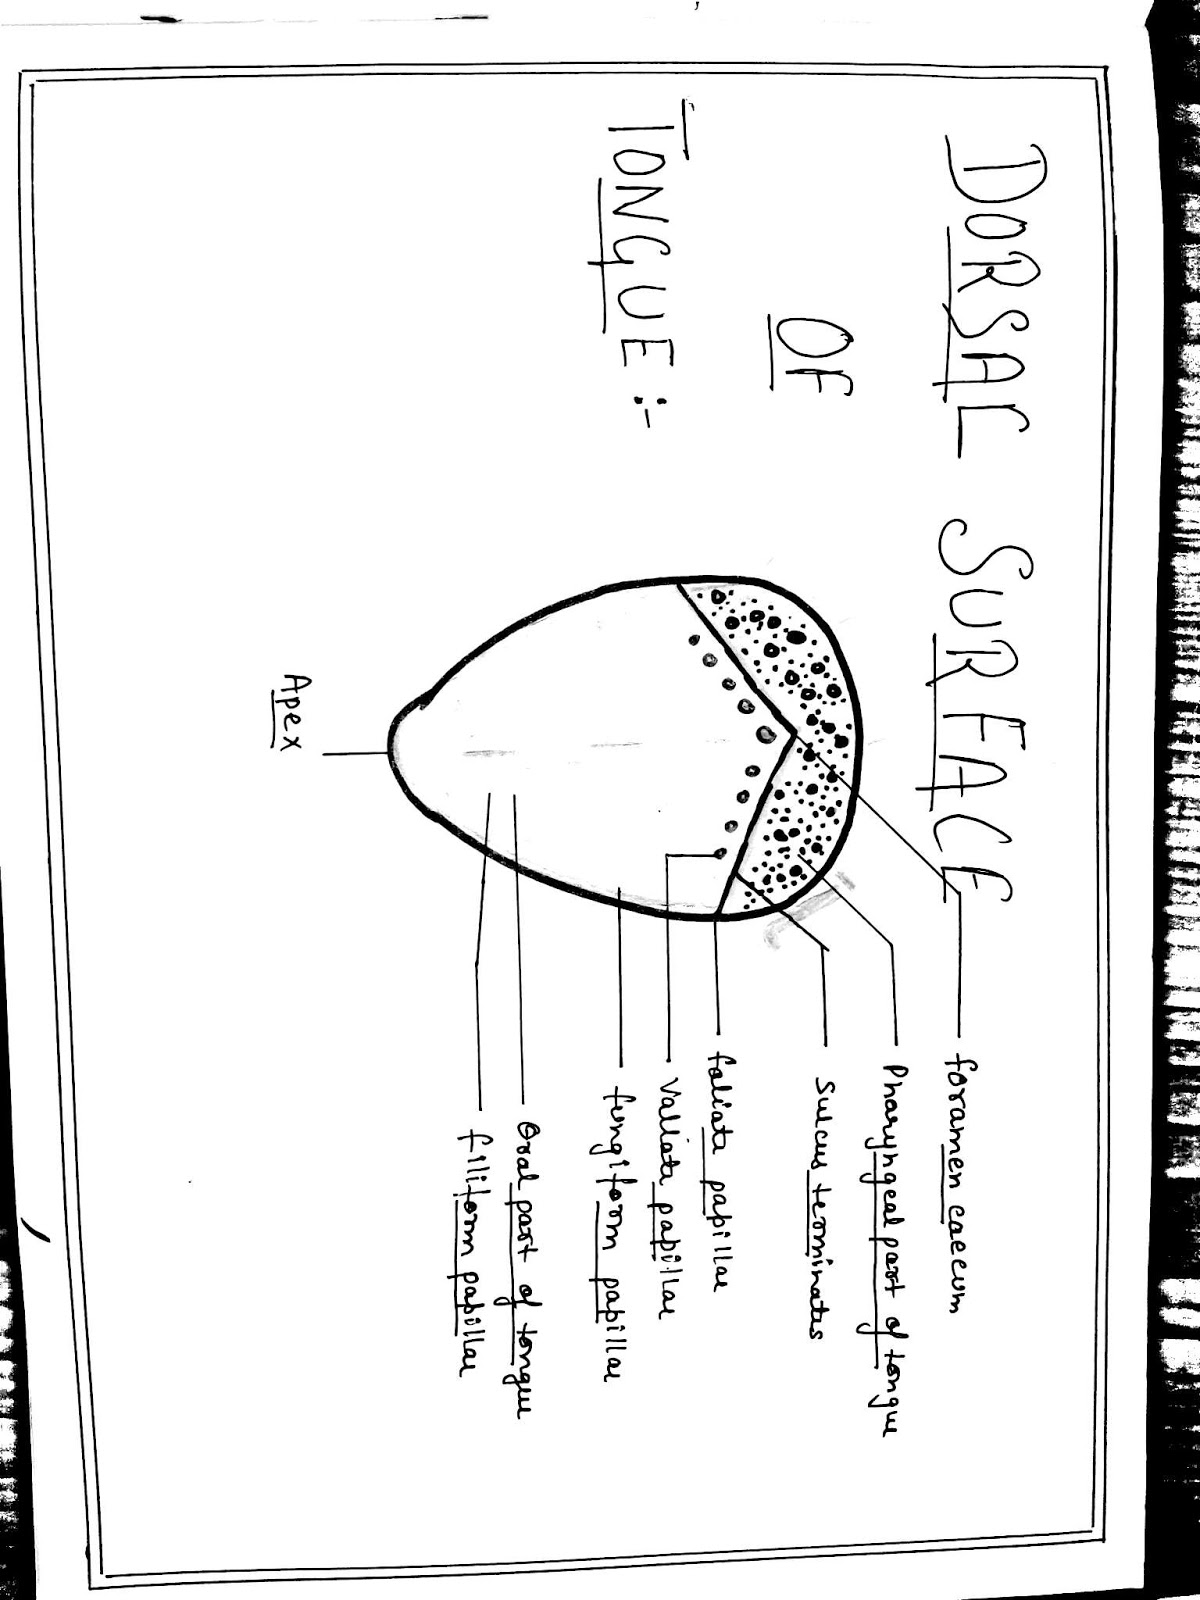 DORSAL SURFACE
OF
TONGUE :-
foramen caecum
Pharyngeal part of tongue
Sulcus terminates
foliate papillae
Vallate papillae
fungiform papillae
Oral part of tongue
filiform papillae
Apex